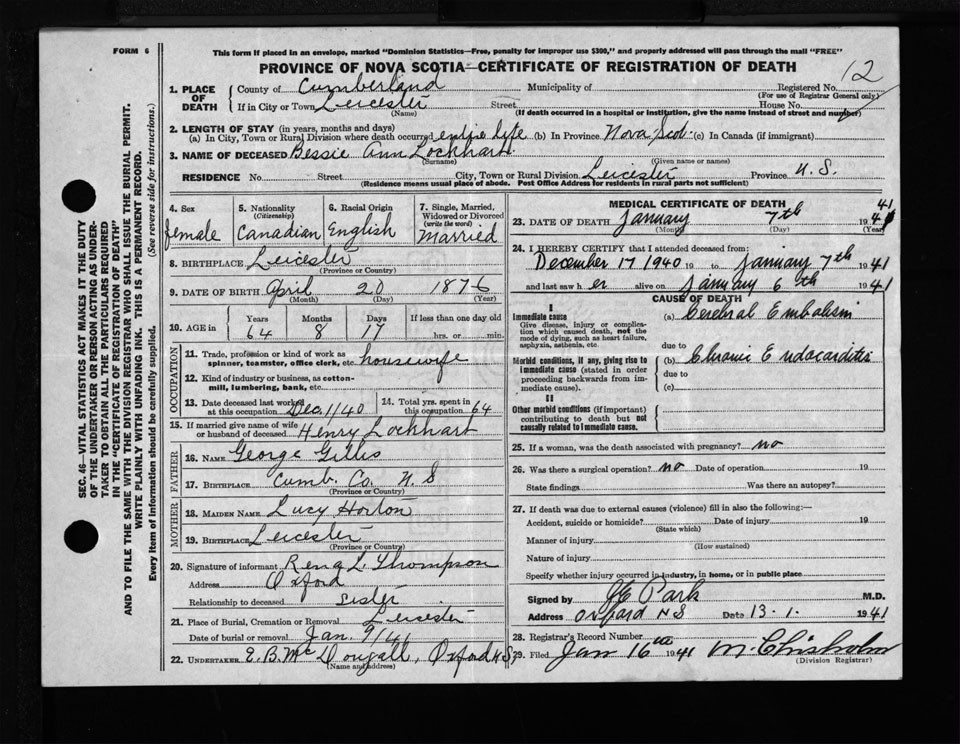 FORM 6
This form if placed in an envelope, marked "Dominion Statistics—Free, penalty for improper use $300," and properly addressed will pass through the mail "FREE"
PROVINCE OF NOVA SCOTIA—CERTIFICATE OF REGISTRATION OF DEATH
12
1. PLACE OF DEATH County of Cumberland Municipality of Registered No.
(For use of Registrar General only)
If in City or Town Leicester Street House No.
(Name) (If death occurred in a hospital or institution, give the name instead of street and number)
2. LENGTH OF STAY (in years, months and days)
(a) In City, Town or Rural Division where death occurred entire life (b) In Province Nova Scot. (c) In Canada (if immigrant)
3. NAME OF DECEASED Bessie Ann Lockhart
(Surname) (Given name or names)
RESIDENCE No. Street City, Town or Rural Division Leicester Province N. S.
(Residence means usual place of abode. Post Office Address for residents in rural parts not sufficient)
4. Sex female
5. Nationality (Citizenship) Canadian
6. Racial Origin English
7. Single, Married, Widowed or Divorced (write the word) Married
8. BIRTHPLACE Leicester
(Province or Country)
9. DATE OF BIRTH April 20 1876
(Month) (Day) (Year)
10. AGE in Years Months Days If less than one day old
64 8 17 hrs. or min.
OCCUPATION
11. Trade, profession or kind of work as spinner, teamster, office clerk, etc. housewife
12. Kind of industry or business, as cotton-mill, lumbering, bank, etc.
13. Date deceased last worked at this occupation Dec. 1/40 14. Total yrs. spent in this occupation 64
15. If married give name of wife or husband of deceased Henry Lockhart
FATHER
16. Name George Gillis
17. Birthplace Cumb. Co. N. S
(Province or Country)
MOTHER
18. Maiden Name Lucy Horton
19. Birthplace Leicester
(Province or Country)
20. Signature of informant Rena L. Thompson
Address Oxford
Relationship to deceased Sister
21. Place of Burial, Cremation or Removal Leicester
Date of burial or removal Jan. 9/41
22. UNDERTAKER E. B. McDougall, Oxford N.S.
(Name and address)
MEDICAL CERTIFICATE OF DEATH
23. DATE OF DEATH January 7th 1941
(Month) (Day) (Year)
24. I HEREBY CERTIFY that I attended deceased from:
December 17 1940 19 to January 7th 1941
and last saw h er alive on January 6th 1941
CAUSE OF DEATH
I
Immediate cause (a) Cerebral Embolism
Give disease, injury or complication which caused death, not the mode of dying, such as heart failure, asphyxia, asthenia, etc.
due to
Morbid conditions, if any, giving rise to immediate cause (stated in order proceeding backwards from immediate cause).
(b) Chronic Endocarditis
due to
(c)
II
Other morbid conditions (if important) contributing to death but not causally related to immediate cause.
25. If a woman, was the death associated with pregnancy? no
26. Was there a surgical operation? no Date of operation 19
State findings Was there an autopsy?
27. If death was due to external causes (violence) fill in also the following:—
Accident, suicide or homicide? Date of injury 19
(State which)
Manner of injury
(How sustained)
Nature of injury
Specify whether injury occurred in industry, in home, or in public place
Signed by Park M.D.
Address Oxford N S Date 13. 1. 1941
28. Registrar's Record Number
29. Filed Jan 16th 1941 M. Chisholm
(Division Registrar)
SEC. 46—VITAL STATISTICS ACT MAKES IT THE DUTY
OF THE UNDERTAKER OR PERSON ACTING AS UNDER-
TAKER TO OBTAIN ALL THE PARTICULARS REQUIRED
IN THE "CERTIFICATE OF REGISTRATION OF DEATH"
AND TO FILE THE SAME WITH THE DIVISION REGISTRAR WHO SHALL ISSUE THE BURIAL PERMIT.
WRITE PLAINLY WITH UNFADING INK. THIS IS A PERMANENT RECORD.
Every item of information should be carefully supplied. (See reverse side for instructions.)